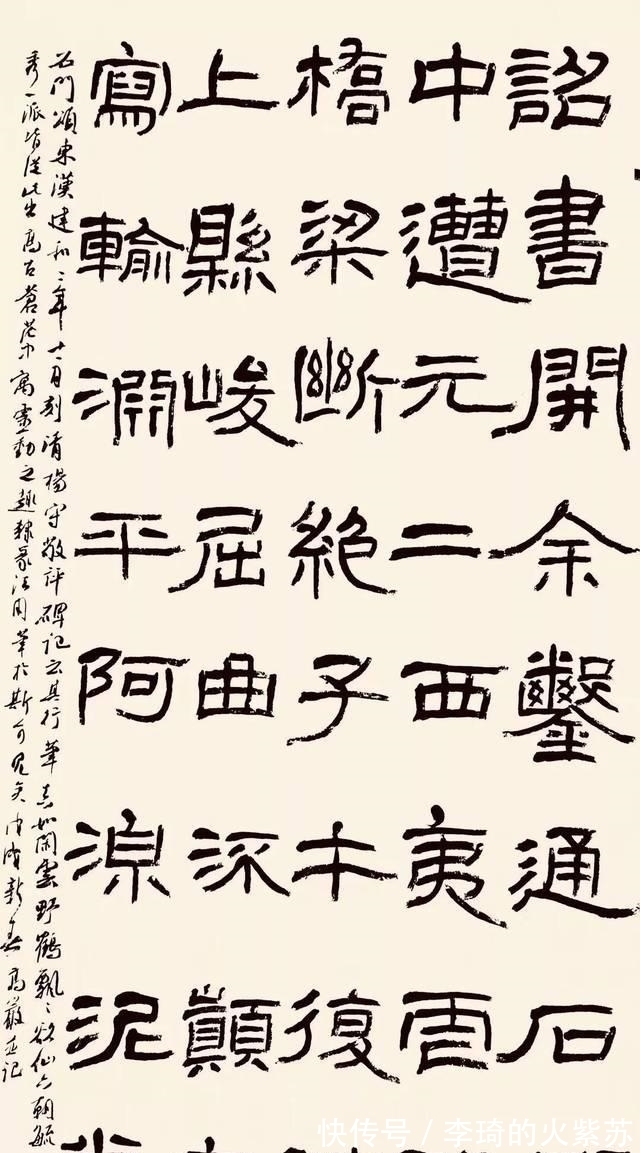 詔書開余鑿通石
中遭元二西夷虐
橋梁斷絕子午復
上縣峻屈曲流顛
寫輸淵平阿湶泥
石門頌東漢建和二年十一月刻清楊守敬評碑記云其行筆真如閑雲野鶴飄〻欲仙六朝毓
秀一派皆從此出高古蒼茫中寓靈動之趣隸篆法用筆於斯可見矣戊戌新春高嚴記
快传号 / 李琦的火紫苏